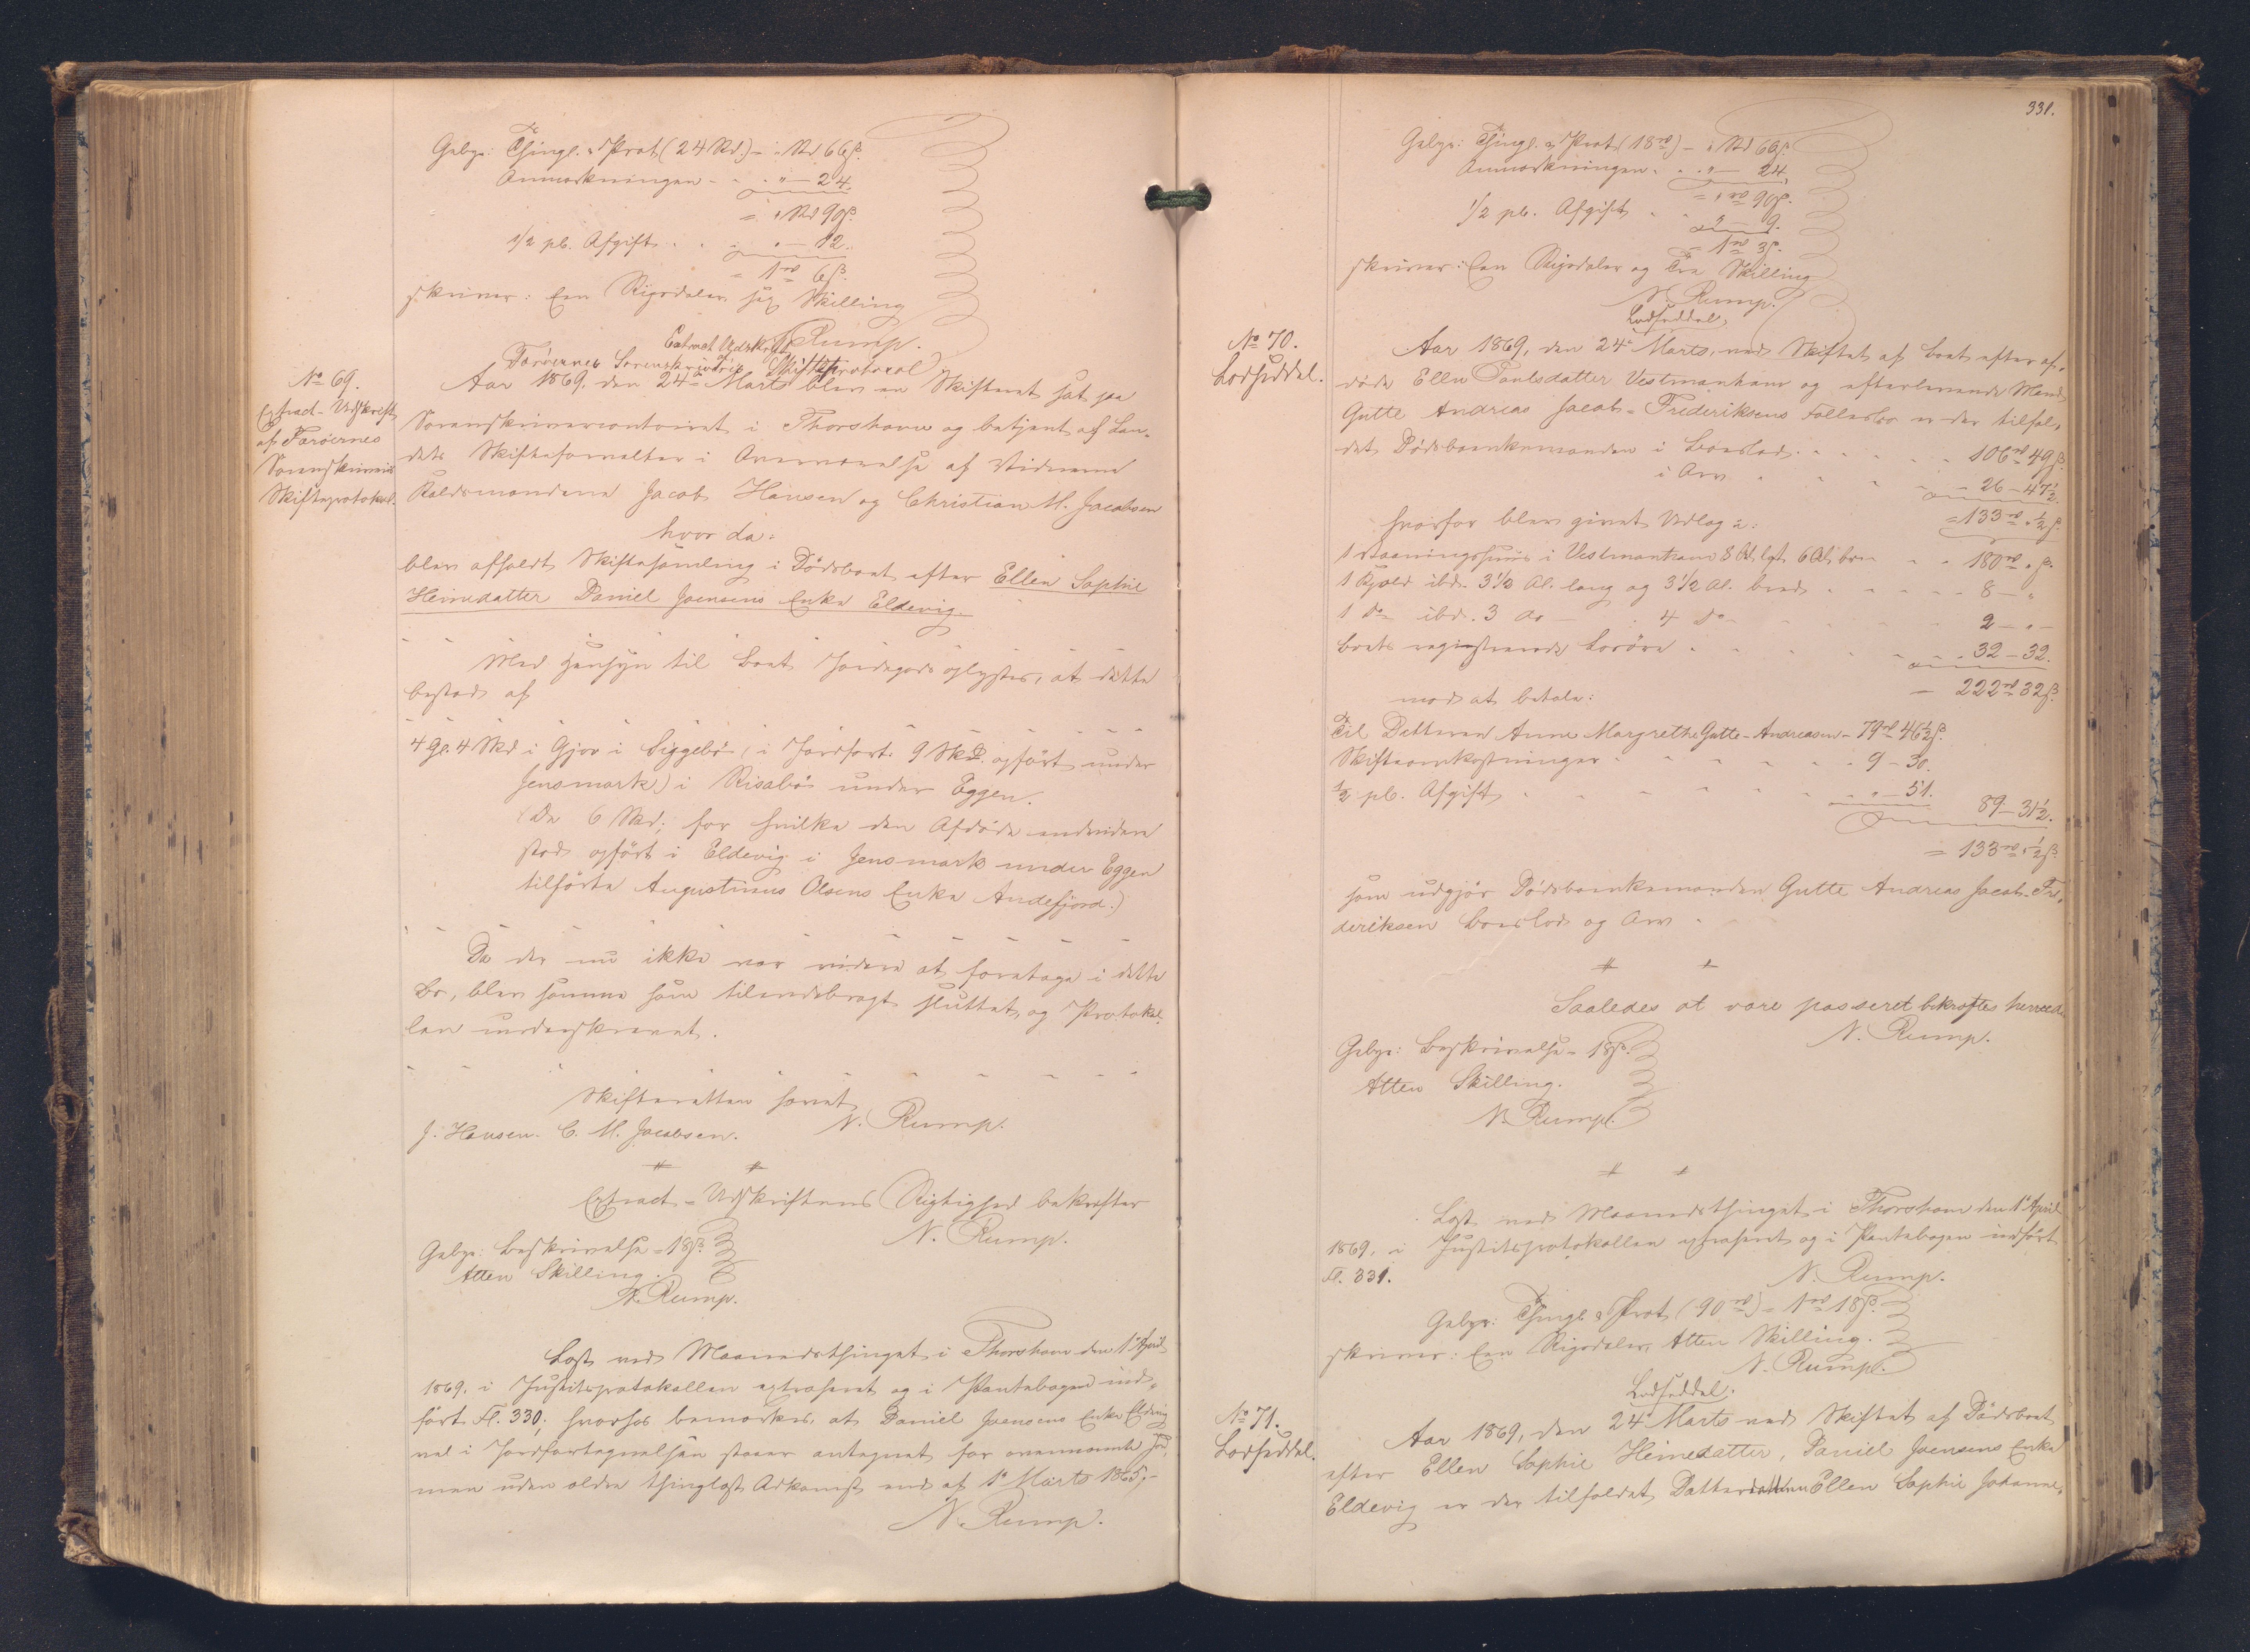 Gebyr: Thingl. & Prot. (24 Rd.) - " Rd 66 ß.
Anmærkningen - - - " — 24.
= " Rd 90 ß.
1/2 pC. Afgift - - - " — 12.
= 1 rd 6 ß.
skriver: Een Rigsdaler sex Skilling
N. Rump.
Extract Udskrift
af
Færöernes Sorenskriveris Skifteprotocol
No 69.
Extract-Udskrift
af Færöernes
Sorenskriveris
Skifteprotokol.
Aar 1869, den 24de Marts blev en Skifteret sat paa
Sorenskrivercontoiret i Thorshavn og betjent af Lan-
dets Skifteforvalter i Overværelse af Vidnerne
Raadsmændene Jacob Hansen og Christian M. Jacobsen
hvor da:
blev afholdt Skiftesamling i Dödsboet efter Ellen Sophie
Heinedatter Daniel Joensens Enke Eldevig
Med Hensyn til Boets Jordegods oplystes, at dette
bestod af
4 Gl. 4 Skd i Gjov i Siggebö (i Jordfort. 9 Skd. opfört under
Jensmark) i Risabö under Eggen.
(De 6 Skd, for hvilke den Afdöde endvidere
stod opfört i Eldevig i Jensmark under Eggen
tilhörte Augustinus Olsens Enke Andefjord.)
Da der nu ikke var videre at foretage i dette
Bo, blev samme som tilendebragt sluttet, og Protokol-
len underskrevet.
Skifteretten hævet
J. Hansen. C. M. Jacobsen. N. Rump.
Extract-Udskriftens Rigtighed bekræfter
N. Rump.
Gebyr: Beskrivelse = 18 ß.
Atten Skilling.
N. Rump.
Læst ved Maanedsthinget i Thorshavn den 1e April
1869, i Justitsprotokollen extraheret og i Pantebogen ind-
fört Fl. 330; hvorhos bemærkes, at Daniel Joensens Enke Eldevig
vel i Jordfortegnelsen staaer antegnet for ovennævnte Jord,
men uden ældre thinglæst Adkomst end af 1e Marts 1865.-
N. Rump.
331.
Gebyr: Thingl. & Prot. (18 rd) - " Rd 66 ß.
Anmærkningen - - - " — 24.
= " rd 90 ß.
1/2 pC. Afgift - - " — 9.
= 1 rd 3 ß.
skriver: Een Rigsdaler og Tre Skilling
N. Rump.
Lodseddel
No 70.
Lodseddel.
Aar 1869, den 24de Marts, ved Skiftet af Boet efter af-
döde Ellen Poulsdatter Vestmanhavn og efterlevende Mand
Gutte Andreas Jacob-Frederiksens Fællesbo er der tilfal-
det Dödsboenkemanden i Boeslod - - - - 106 rd 49 ß.
i Arv - - - - 26 — 47 1/2.
= 133 rd " 1/2 ß.
hvorfor blev givet Udlæg i:
1 Vaaningshuus i Vestmanhavn 8 Al. lgt. 6 Al. bre - - 180 rd " ß.
1 Hjeld ibd. 3 1/2 Al. lang og 3 1/2 Al. bred - - - - 8 — "
1 do ibd. 3 do — 4 do - - - - 2 — " —
Boets registrerede Lösöre - - - - 32 — 32.
— 222 rd 32 ß.
mod at betale:
Til Datteren Anne Margrethe Gutte-Andreasen - 79 rd 46 1/2 ß.
Skifteomkostninger - - - - 9 — 30.
1/2 pC. Afgift - - - - " — 51.
89 — 31 1/2.
= 133 rd " 1/2 ß.
som udgjör Dödsboenkemanden Gutte Andreas Jacob-Fre-
deriksen Boeslod og Arv -
Saaledes at være passeret bekræftes herved
N. Rump.
Gebyr: Beskrivelse - 18 ß.
Atten Skilling.
N. Rump.
Læst ved Maanedsthinget i Thorshavn den 1e April
1869, i Justitsprotokollen extraheret og i Pantebogen indfört
Fl. 331.
N. Rump.
Gebyr: Thingl. & Prot. (90 rd) = 1 rd 18 ß.
skriver: Een Rigsdaler, Atten Skilling.
N. Rump.
Lodseddel.
No 71.
Lodseddel.
Aar 1869, den 24de Marts ved Skiftet af Dödsboet
efter Ellen Sophie Heinedatter, Daniel Joensens Enke
Eldevig er der tilfaldet Datterdatteren Ellen Sophie Johanne,